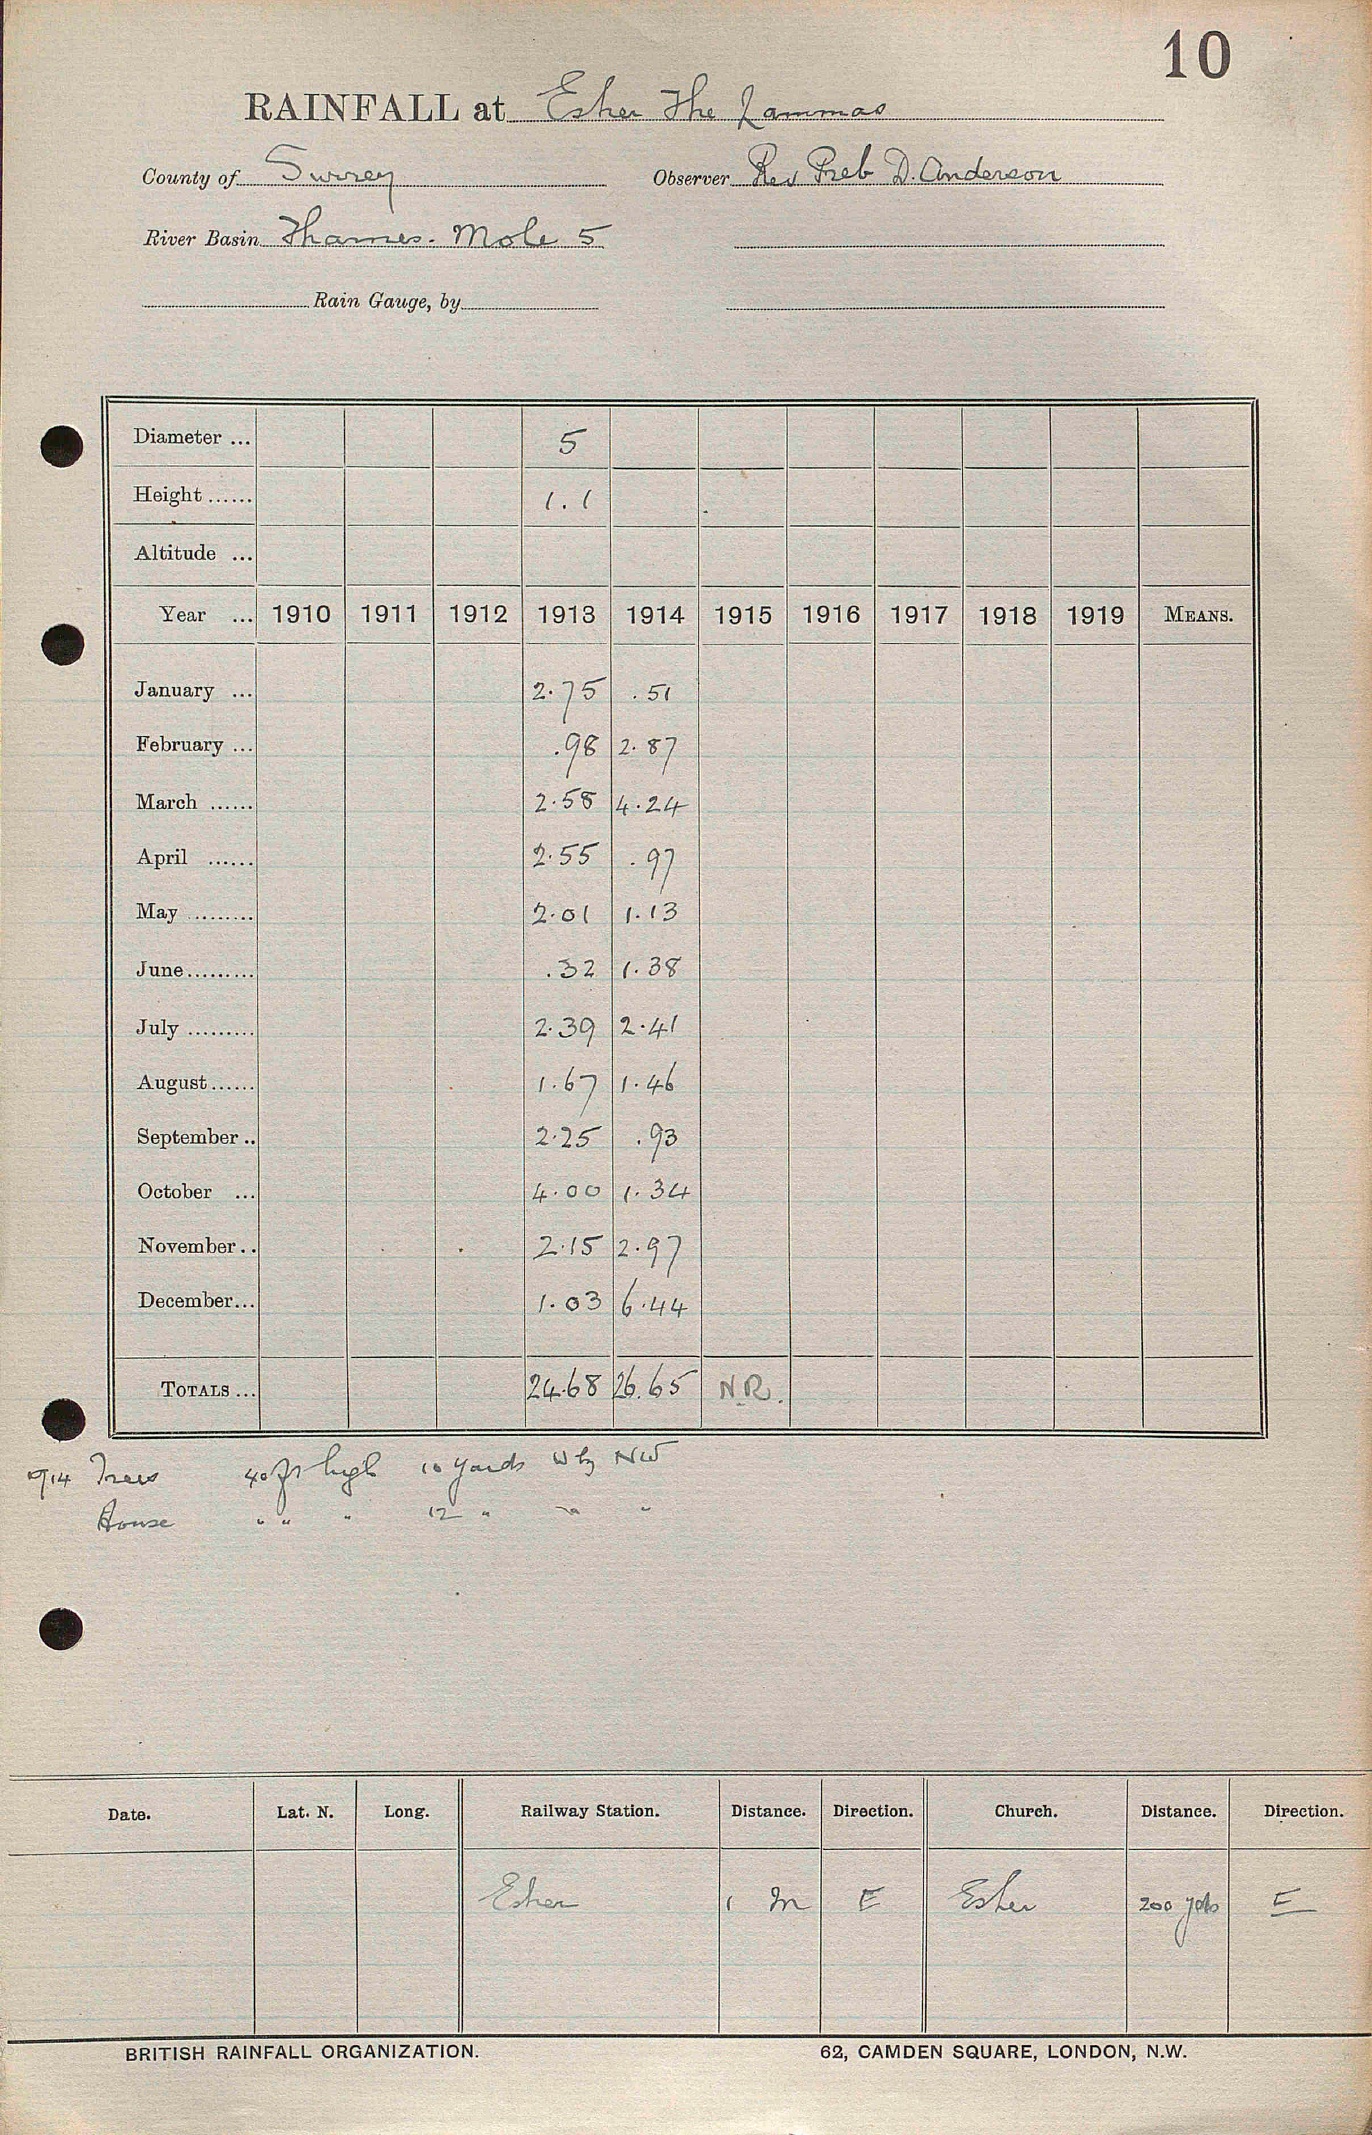 10
RAINFALL at Esher The Lammas
County of Surrey Observer Rev Preb D. Anderson
River Basin Thames. Mole 5
Rain Gauge, by
Diameter ... 5
Height ...... 1.1
Altitude ...
Year ... 1910 1911 1912 1913 1914 1915 1916 1917 1918 1919 MEANS.
January ... 2.75 .51
February ... .98 2.87
March ...... 2.58 4.24
April ...... 2.55 .97
May ......... 2.01 1.13
June......... .32 1.38
July ......... 2.39 2.41
August...... 1.67 1.46
September .. 2.25 .93
October ... 4.00 1.34
November.. 2.15 2.97
December... 1.03 6.44
TOTALS ... 24.68 26.65 N.R.
1914 Trees 40 ft high 10 yards W by NW
House " " " 12 " " "
Date. Lat. N. Long. Railway Station. Distance. Direction. Church. Distance. Direction.
Esher 1 m E Esher 200 yds E
BRITISH RAINFALL ORGANIZATION. 62, CAMDEN SQUARE, LONDON, N.W.